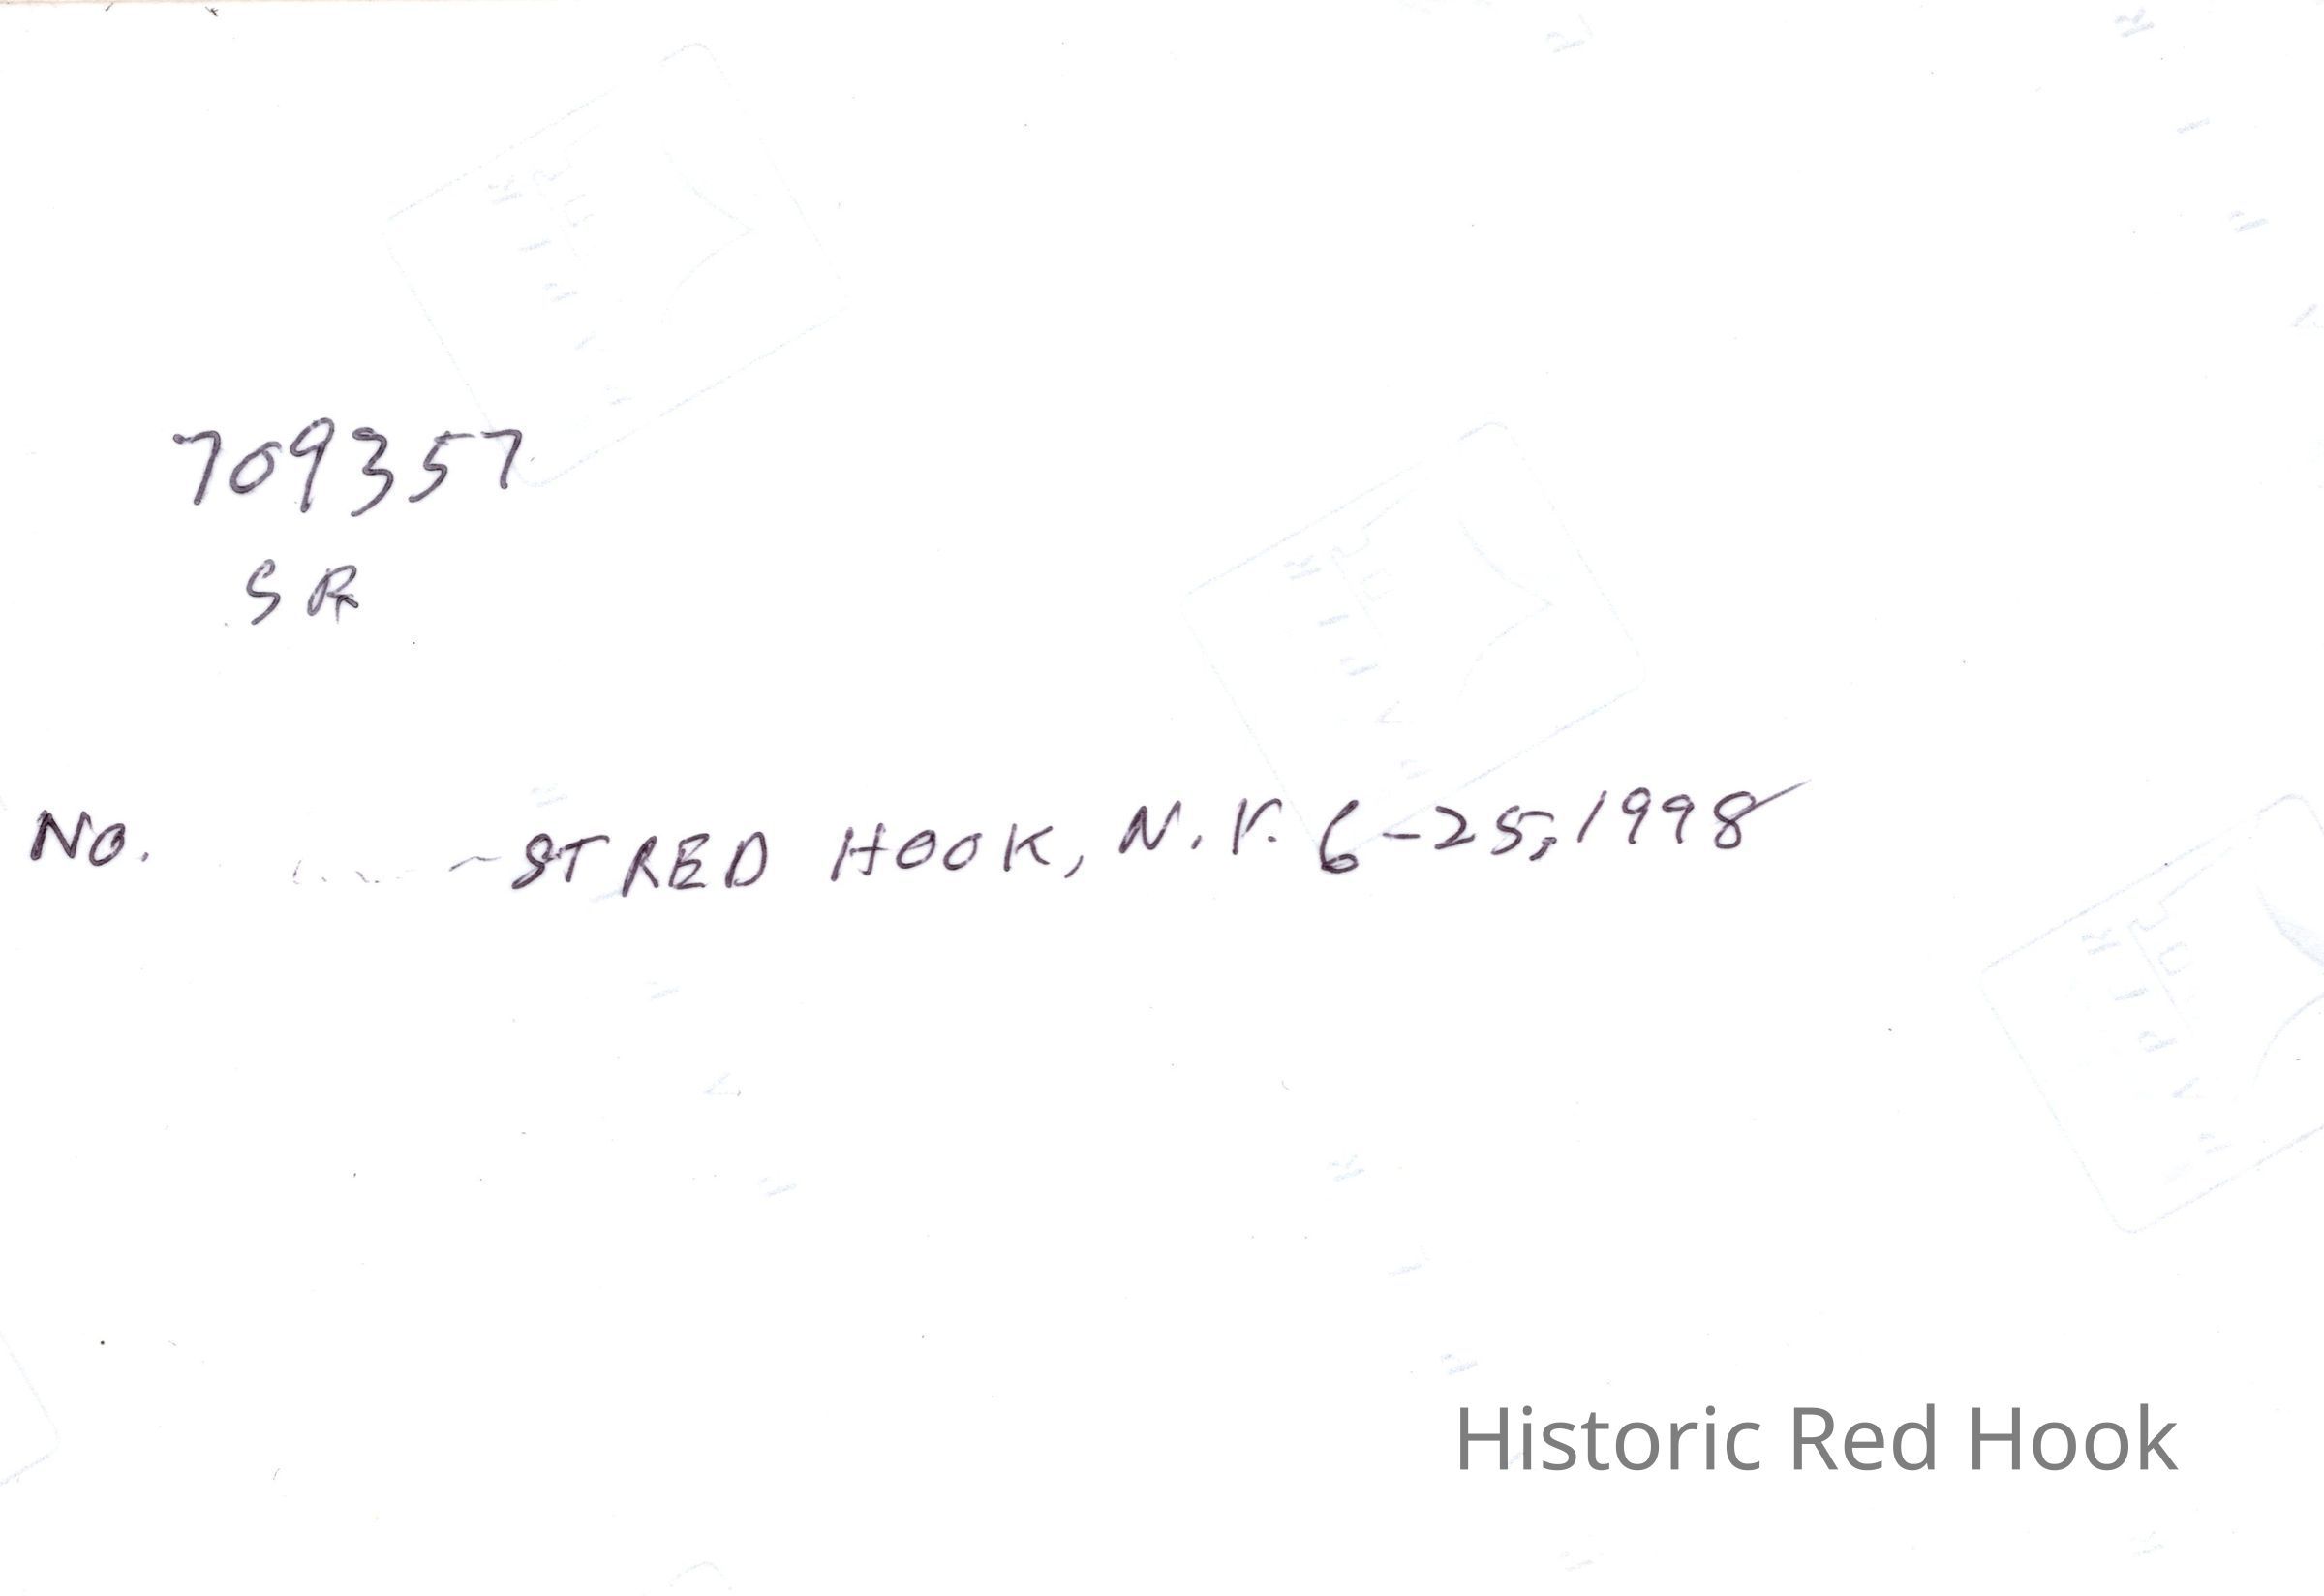 709357
SR
No. ST RED HOOK, N.Y. 6-25, 1998
Historic Red Hook